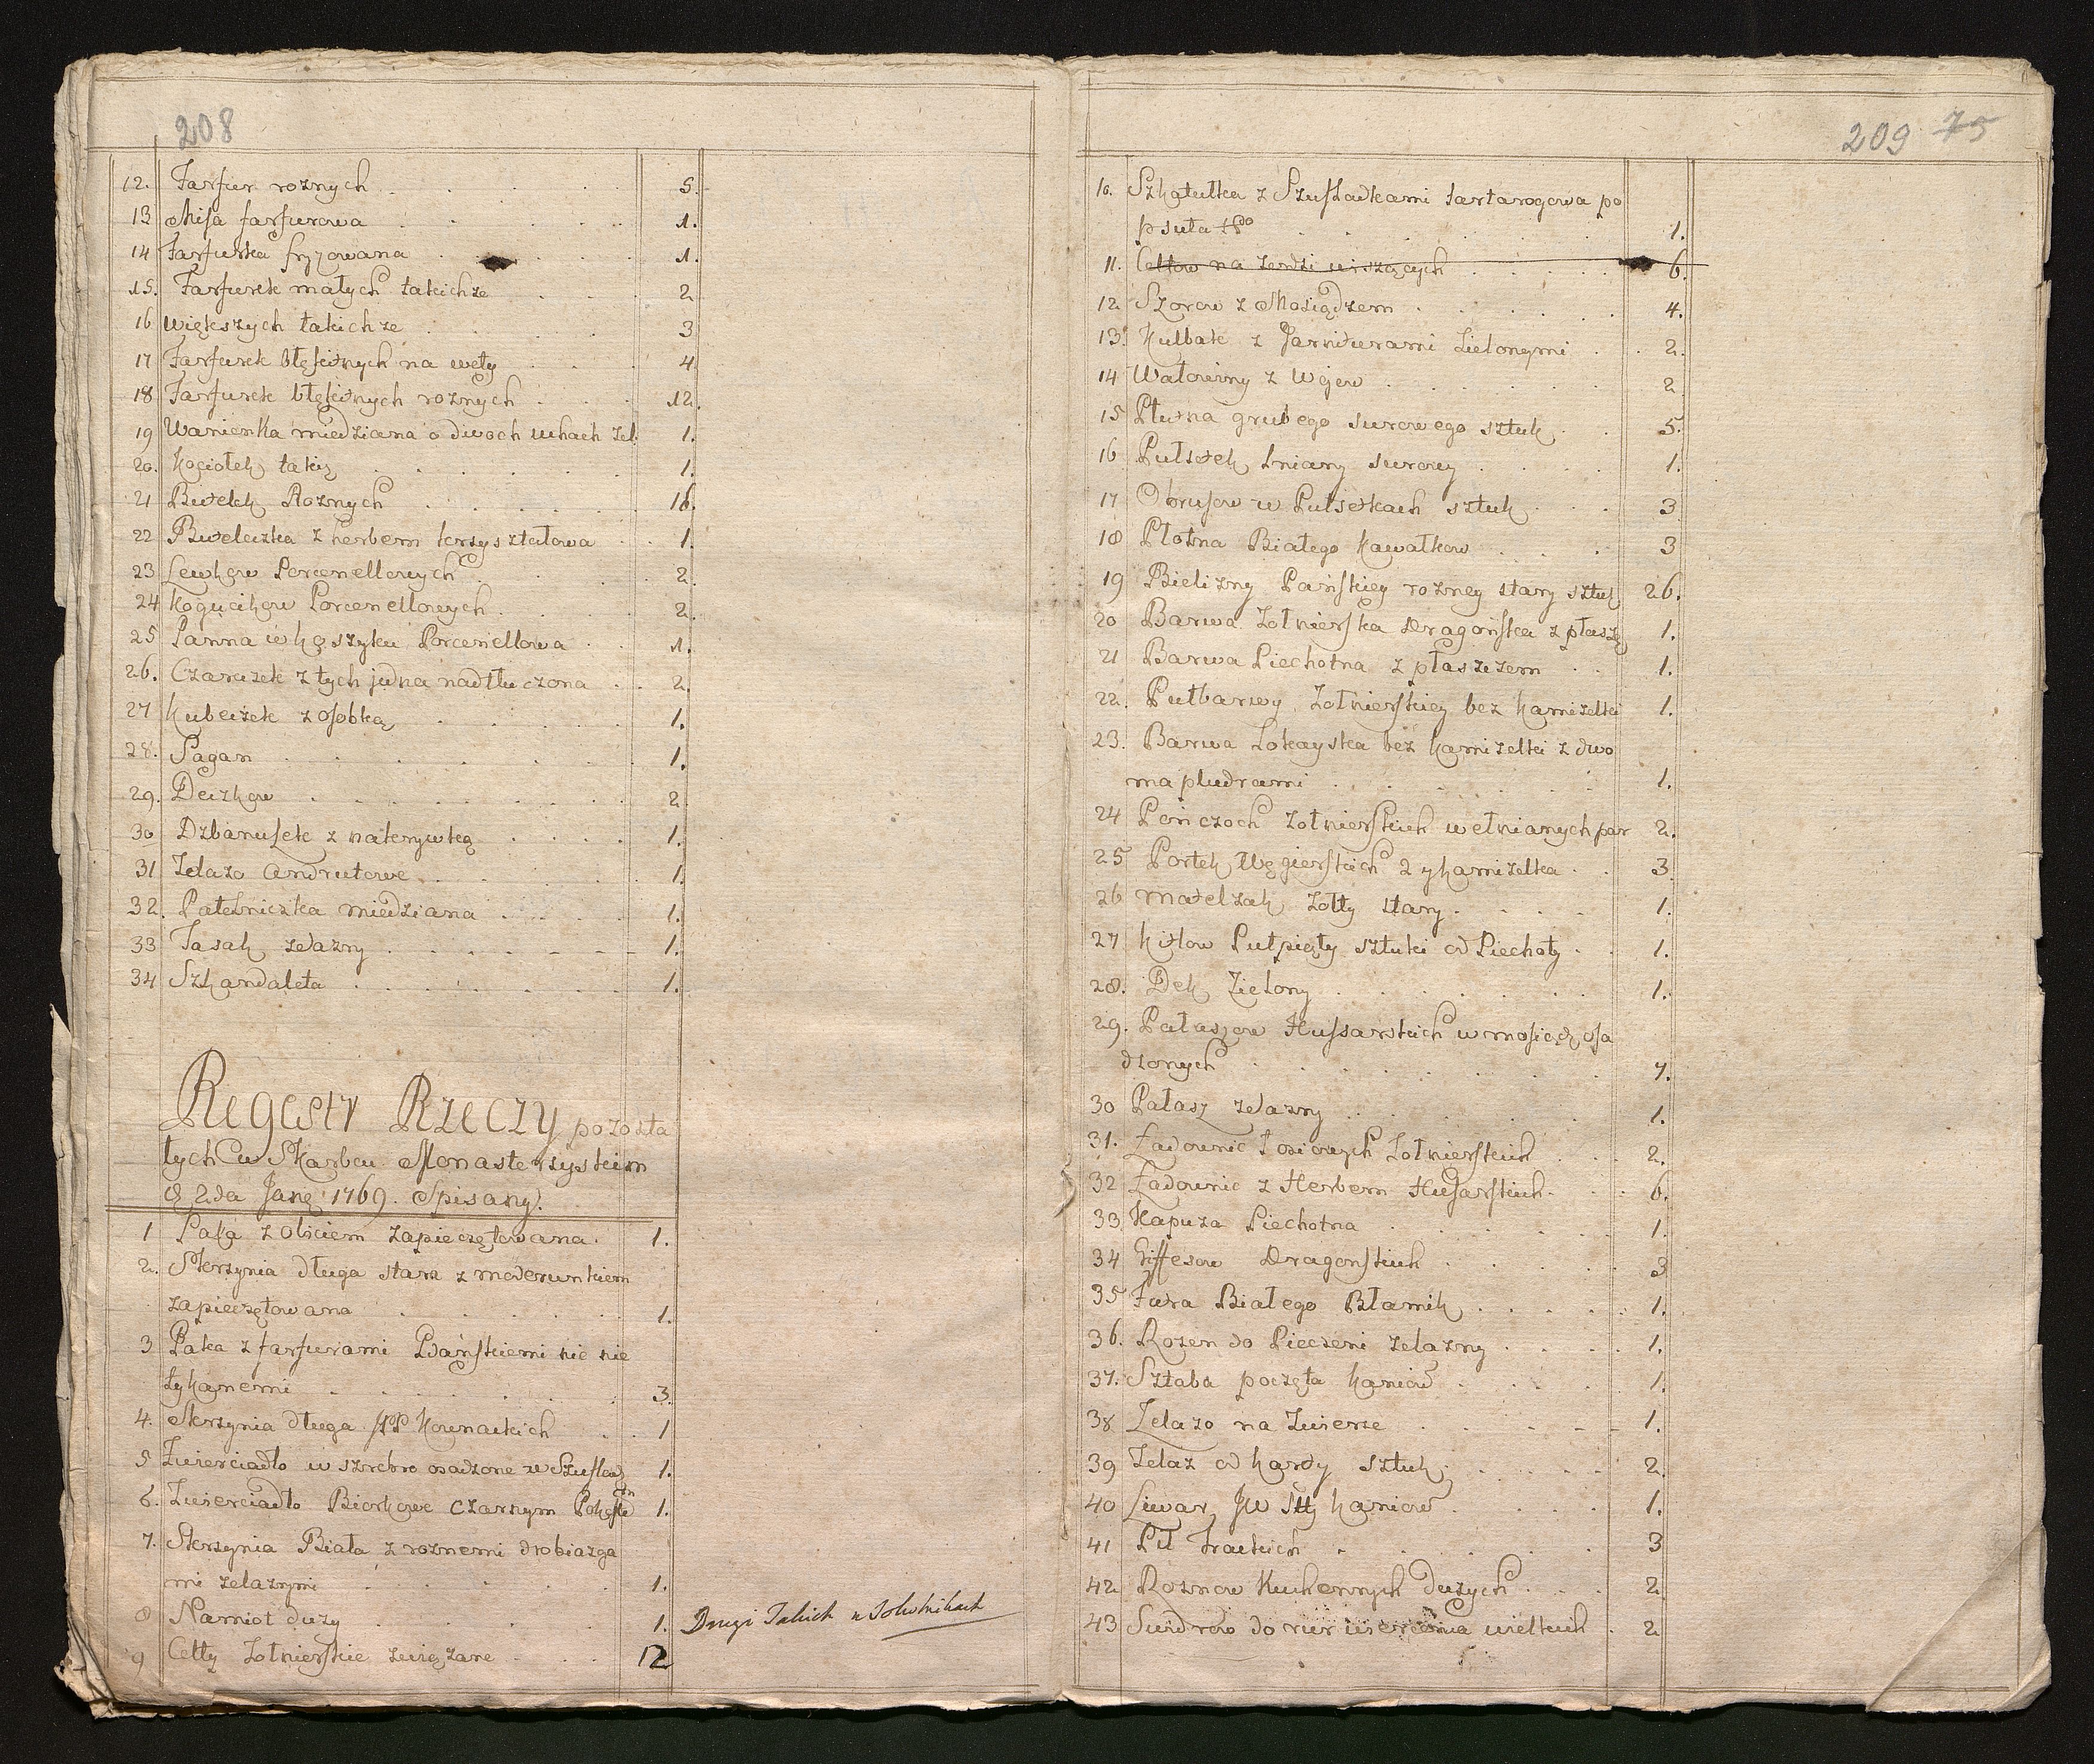 208
12. Farfur roznych 5.
13 Misa farfurowa 1.
14 Farfurka fryzowana 1.
15. Farfurek małych takichze 2
16 większych takichze 3
17 Farfurek błękitnych na wety 4
18 Farfurek błękitnych roznych 12.
19 Wanienka miedziana o dwoch uchach zel. 1.
20. Kociołek takiz 1.
21 Butelek Roznych 16.
22 Buteleczka z herbem krzysztatowa 1.
23 Lewkow Porcenellowych 2.
24 Kogucikow Porcenellowych 2.
25 Panna w koszyku Porcenellowa 1.
26. Czarczek z tych jedna nadtłuczona 2.
27 Kubeczek z osobką 1.
28. Sagan 1.
29. Deczkow 2.
30 Dzbanusek z nakrywką 1.
31 Zelazo Andrutowe 1.
32. Patelniczka miedziana 1.
33 Tasak zelazny 1.
34 Szkandaleta 1.
Regestr Rzeczy pozosta
łych w Skarbcu Monasterzyskim
d 2da Janr 1769. Spisany.
1 Paka z oliciem zapieczętowana. 1.
2. Skrzynia długa stara z moderunkiem
zapieczętowana 1.
3 Paka z farfurami Gdańskiemi nic nie
tykanemi 3.
4. Skrzynia długa PP Kownackich 1
5 Zwierciadło w szrebro osadzone w Szufladz 1.
6. Zwierciadło Biorkowe czarnym Pokostem 1.
7. Skrzynia Biała z roznemi drobiazga
mi zelaznymi 1.
8 Namiot duzy 1. Drugi Takich w Tołustnikach
9 Celty Zołnierskie związane 12
209 75
10. Szkatułka z Szufladkami tartarogowa po
psuta 1.
11. Celtow na zerdzi wiszących 6.
12 Szorow z Mosiądzem 4.
13. Kulbak z Garniturami Zielonymi 2.
14 Watowiny z Wojew 2
15 Płutna grubego surowego sztuk 5.
16 Pulsetek lniany surowy 1.
17 Obrusow w Pulsetkach sztuk 3
18 Płotna Białego Kawałkow 3
19 Bielizny Pańskiey rozney stary sztuk 26.
20 Barwa Zołnierska Dragońska z płaszcz 1.
21 Barwa Piechotna z płaszczem 1.
22. Pułbarwy Zołnierskiey bez Kamizelki 1.
23. Barwa Lokayska bez Kamizelki z dwo
ma pludrami 1.
24 Pończoch Zołnierskich wełnianych par 2.
25 Portek Węgierskich 2 y Kamizelka 3.
26 Matelzak Zołty stary 1.
27 Kitlow Pułpięty sztuki od Piechoty 1.
28. Dek Zielony 1.
29. Pałaszow Hussarskich w mosiądz osa
dzonych 7.
30 Pałasz zelazny 1.
31. Ładownic Łosiowych Zołnierskich 2.
32 Ładownic z Herbem Husarskich 6.
33 Kapuza Piechotna 1.
34 Giffesow Dragonskich 3
35 Futra Białego Błamik 1.
36. Rozen do Pieczeni zelazny 1.
37. Sztaba poczęta Kaniow 1.
38 Zelazo na Zwierze 1.
39 Zelaz od Kardy sztuk 2.
40 Liwar JW Stty Kaniow 1.
41 Pił Trackich 3
42 Roznow Kuchennych duzych 2
43 Swidrow do rur wiercenia wielkich 2